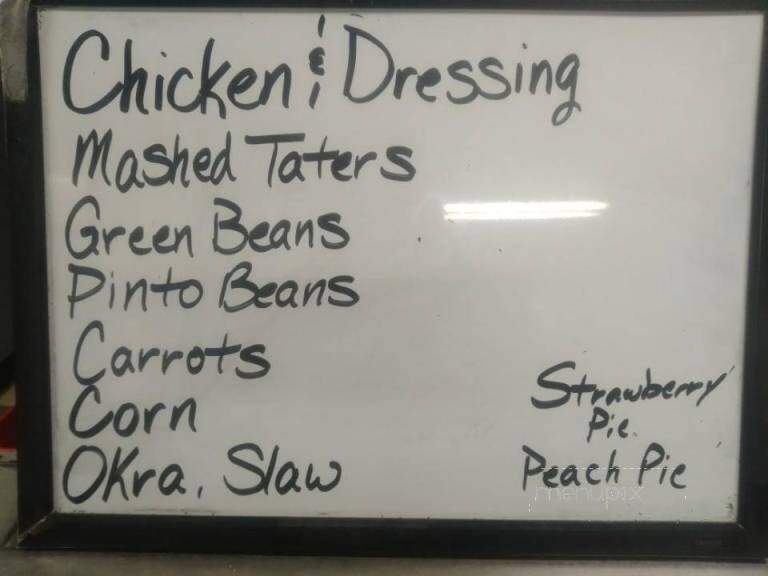 Chicken & Dressing
Mashed Taters
Green Beans
Pinto Beans
Carrots
Corn
Okra, Slaw
Strawberry
Pie.
Peach Pie
menupix